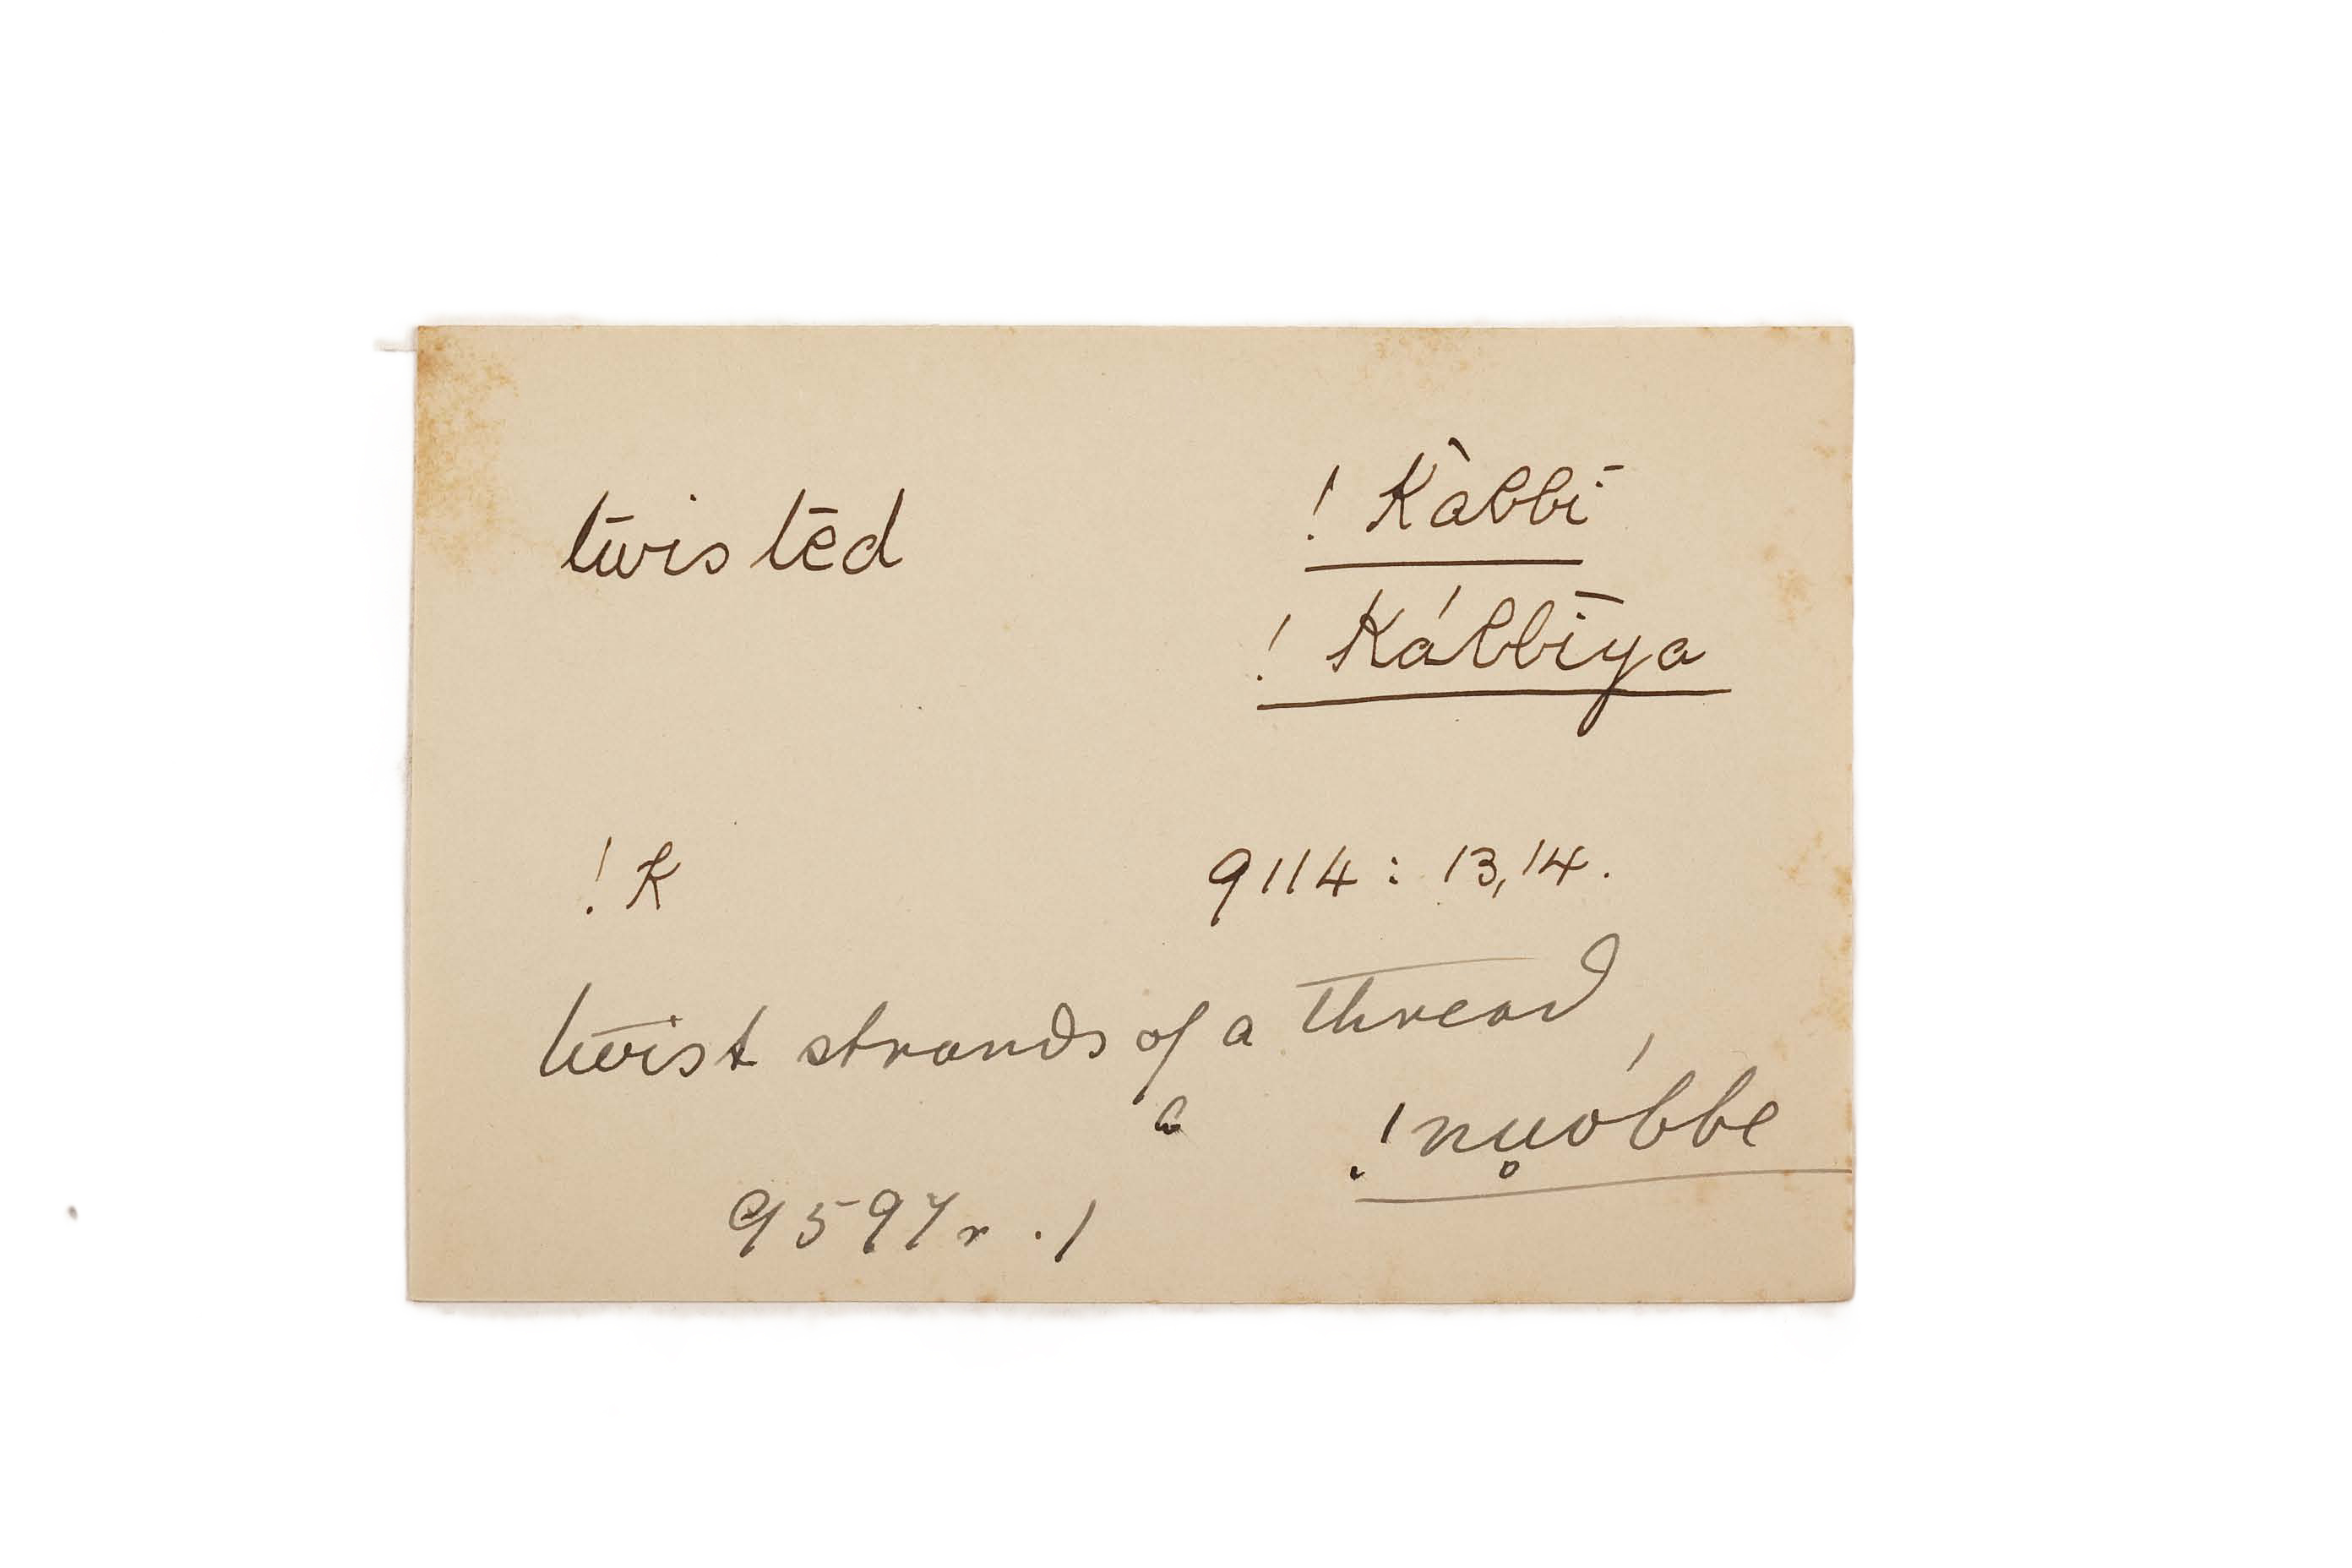 twisted ! Kàbbī
! Kábbīya
! K 9114 : 13, 14.
twist strands of a thread,
! nụobbe
9597r . 1